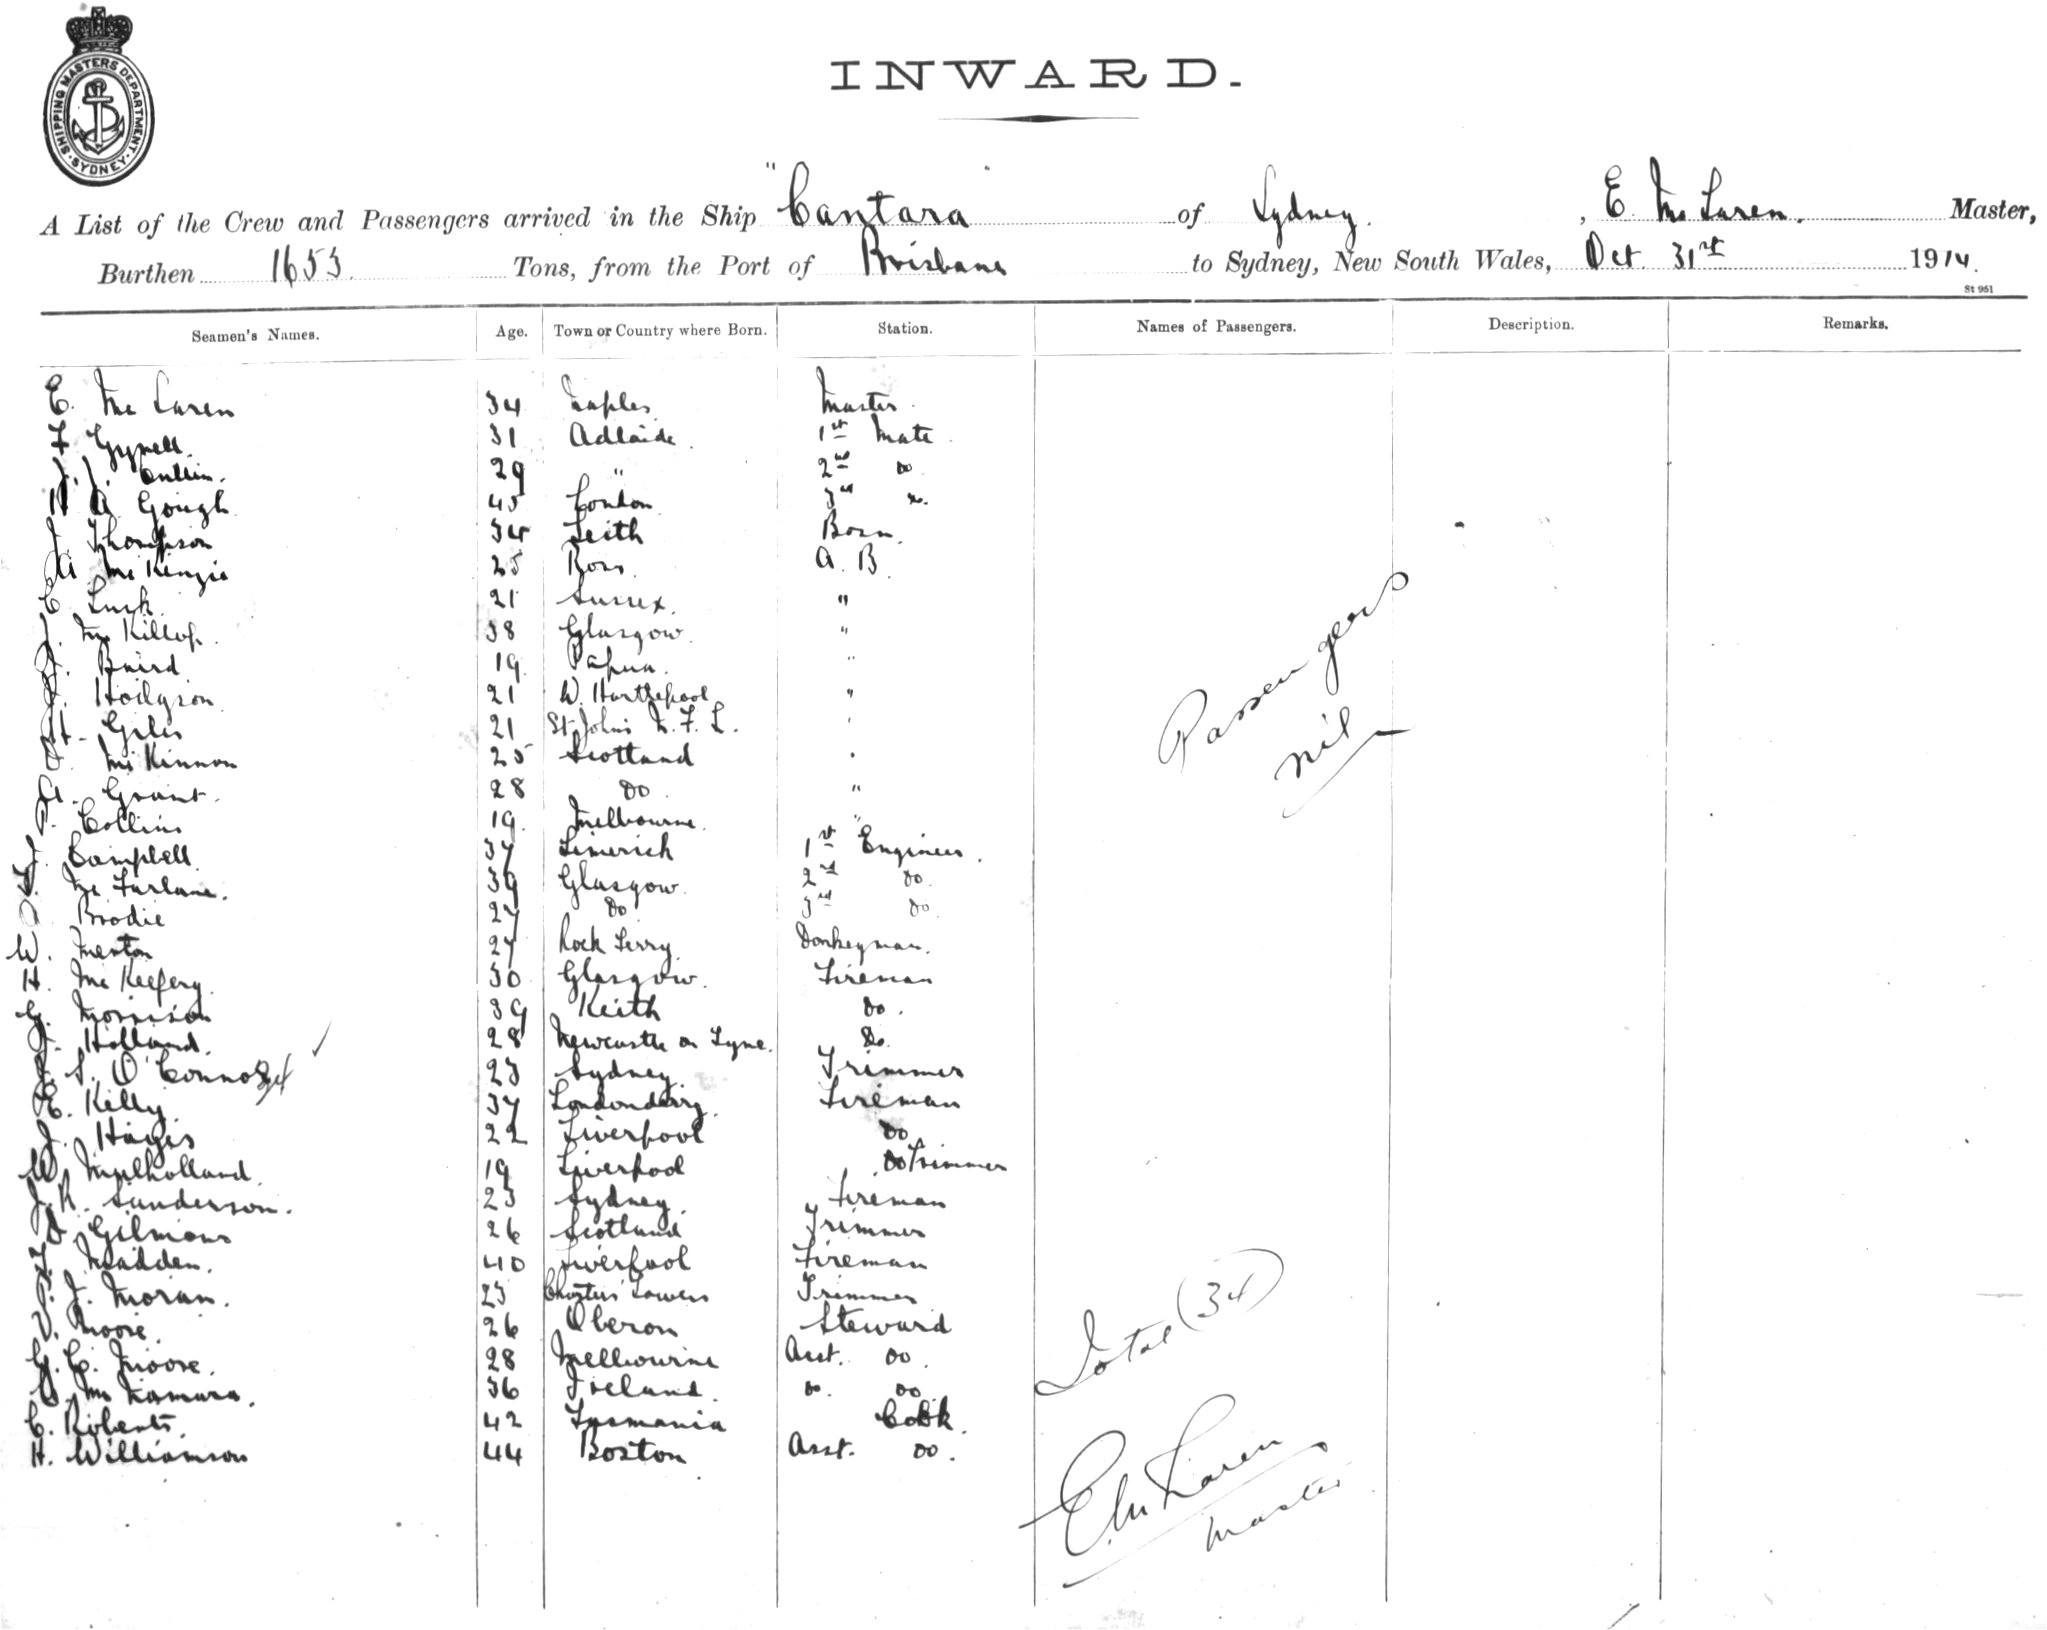 SHIPPING MASTERS DEPARTMENT. SYDNEY.
INWARD.
A List of the Crew and Passengers arrived in the Ship "Cantara" of Sydney, E. McLaren, Master,
Burthen 1653 Tons, from the Port of Brisbane to Sydney, New South Wales, Oct 31st 1914.
St 951
Seamen's Names. Age. Town or Country where Born. Station. Names of Passengers. Description. Remarks.
E. McLaren 34 Naples Master
F Gynell 31 Adlaide 1st Mate
29 " 2nd do
H A Gough 45 London 3rd do.
J. Thompson 34 Leith Bosn.
A McKenzie 25 Ross A. B.
C Lusk 21 Sussex. "
J. McKillop 38 Glasgow. "
J. Baird 19 Papua. "
J. Hodgson 21 W. Hartlepool "
H. Giles 21 St Johns N. F. L. "
McKinnon 25 Scotland "
A. Grant. 28 do "
P. Collins 19 Melbourne. "
J. Campbell 37 Limerick 1st Engineer.
McFarlane. 39 Glasgow. 2nd do.
Brodie 27 do 3rd do
W. Menton 27 Rock Ferry Donkeyman.
H. McKeefery. 30 Glasgow. Fireman
G. Morrison 39 Keith do.
J. Holland. 28 Newcastle on Tyne. do.
J. S. O'Connor 23 Sydney. Trimmer
E. Kelly 37 Londonderry. Fireman
J. Hayes 22 Liverpool do
W. Mulholland 19 Liverpool do Trimmer
J. R. Sanderson. 23 Sydney. Fireman
D Gilmour 26 Scotland Trimmer
F. Madden. 40 Liverpool Fireman
P. J. Moran. 23 Charters Towers Trimmer
V. Moore. 26 Oberon Steward
G. C. Moore. 28 Melbourne Asst. do.
McNamara. 36 Ireland. do. do.
C. Roberts. 42 Tasmania Cook.
H. Williamson 44 Boston Asst. do.
Passengers
nil
Total (34)
E McLaren
Master